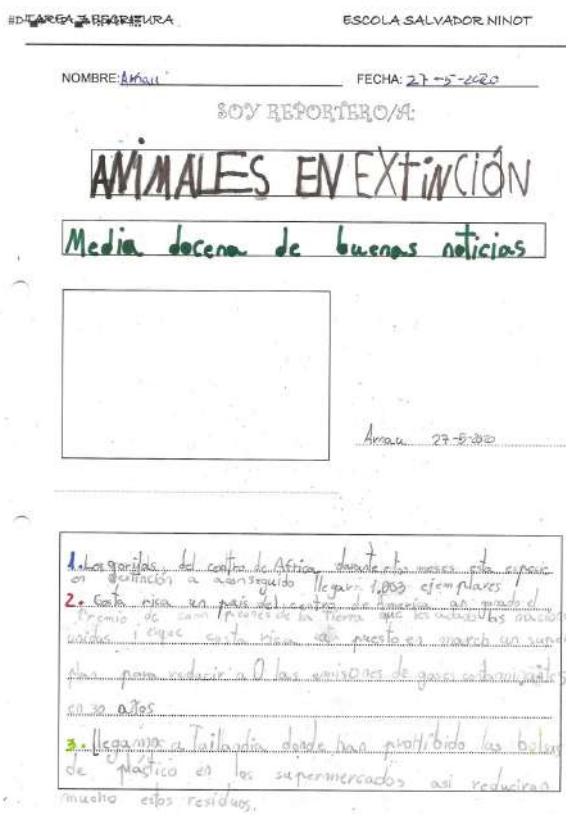 TAREA 3 ESCRITURA ESCOLA SALVADOR NINOT
NOMBRE: Arnau FECHA: 27-5-2020
SOY REPORTERO/A:
ANIMALES EN EXTINCIÓN
Media docena de buenas noticias
Arnau 27-5-2020
1. Los gorilas, del centro de Africa durante estos meses esta especie
en extinción a aconseguido llegar a 1,063 ejemplares
2. Costa rica un país del centro de America an ganado el
Premio de campeones de la Tierra que les las nacio
unidas i costa rica puesto en march un super
plan para reducir a 0 las emisiones de gases contaminantes
en 30 años
3. llegamos a Tailandia donde han prohibido las bolsas
de plástico en los supermercados asi reduciran
mucho estos residuos.